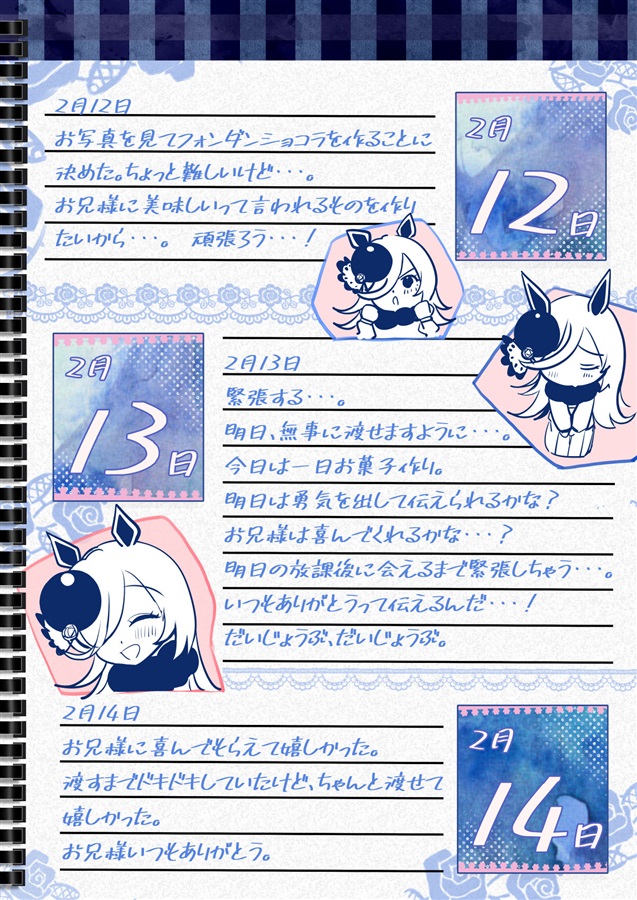 2月12日
お写真を見てフォンダンショコラを作ることに
決めた。ちょっと難しいけど・・・。
お兄様に美味しいって言われるものを作り
たいから・・・。 頑張ろう・・・！
2月
12日
2月
13日
2月13日
緊張する・・・。
明日、無事に渡せますように・・・。
今日は一日お菓子作り。
明日は勇気を出して伝えられるかな？
お兄様は喜んでくれるかな・・・？
明日の放課後に会えるまで緊張しちゃう・・・。
いつもありがとうって伝えるんだ・・・！
だいじょうぶ、だいじょうぶ。
2月14日
お兄様に喜んでもらえて嬉しかった。
渡すまでドキドキしていたけど、ちゃんと渡せて
嬉しかった。
お兄様いつもありがとう。
2月
14日